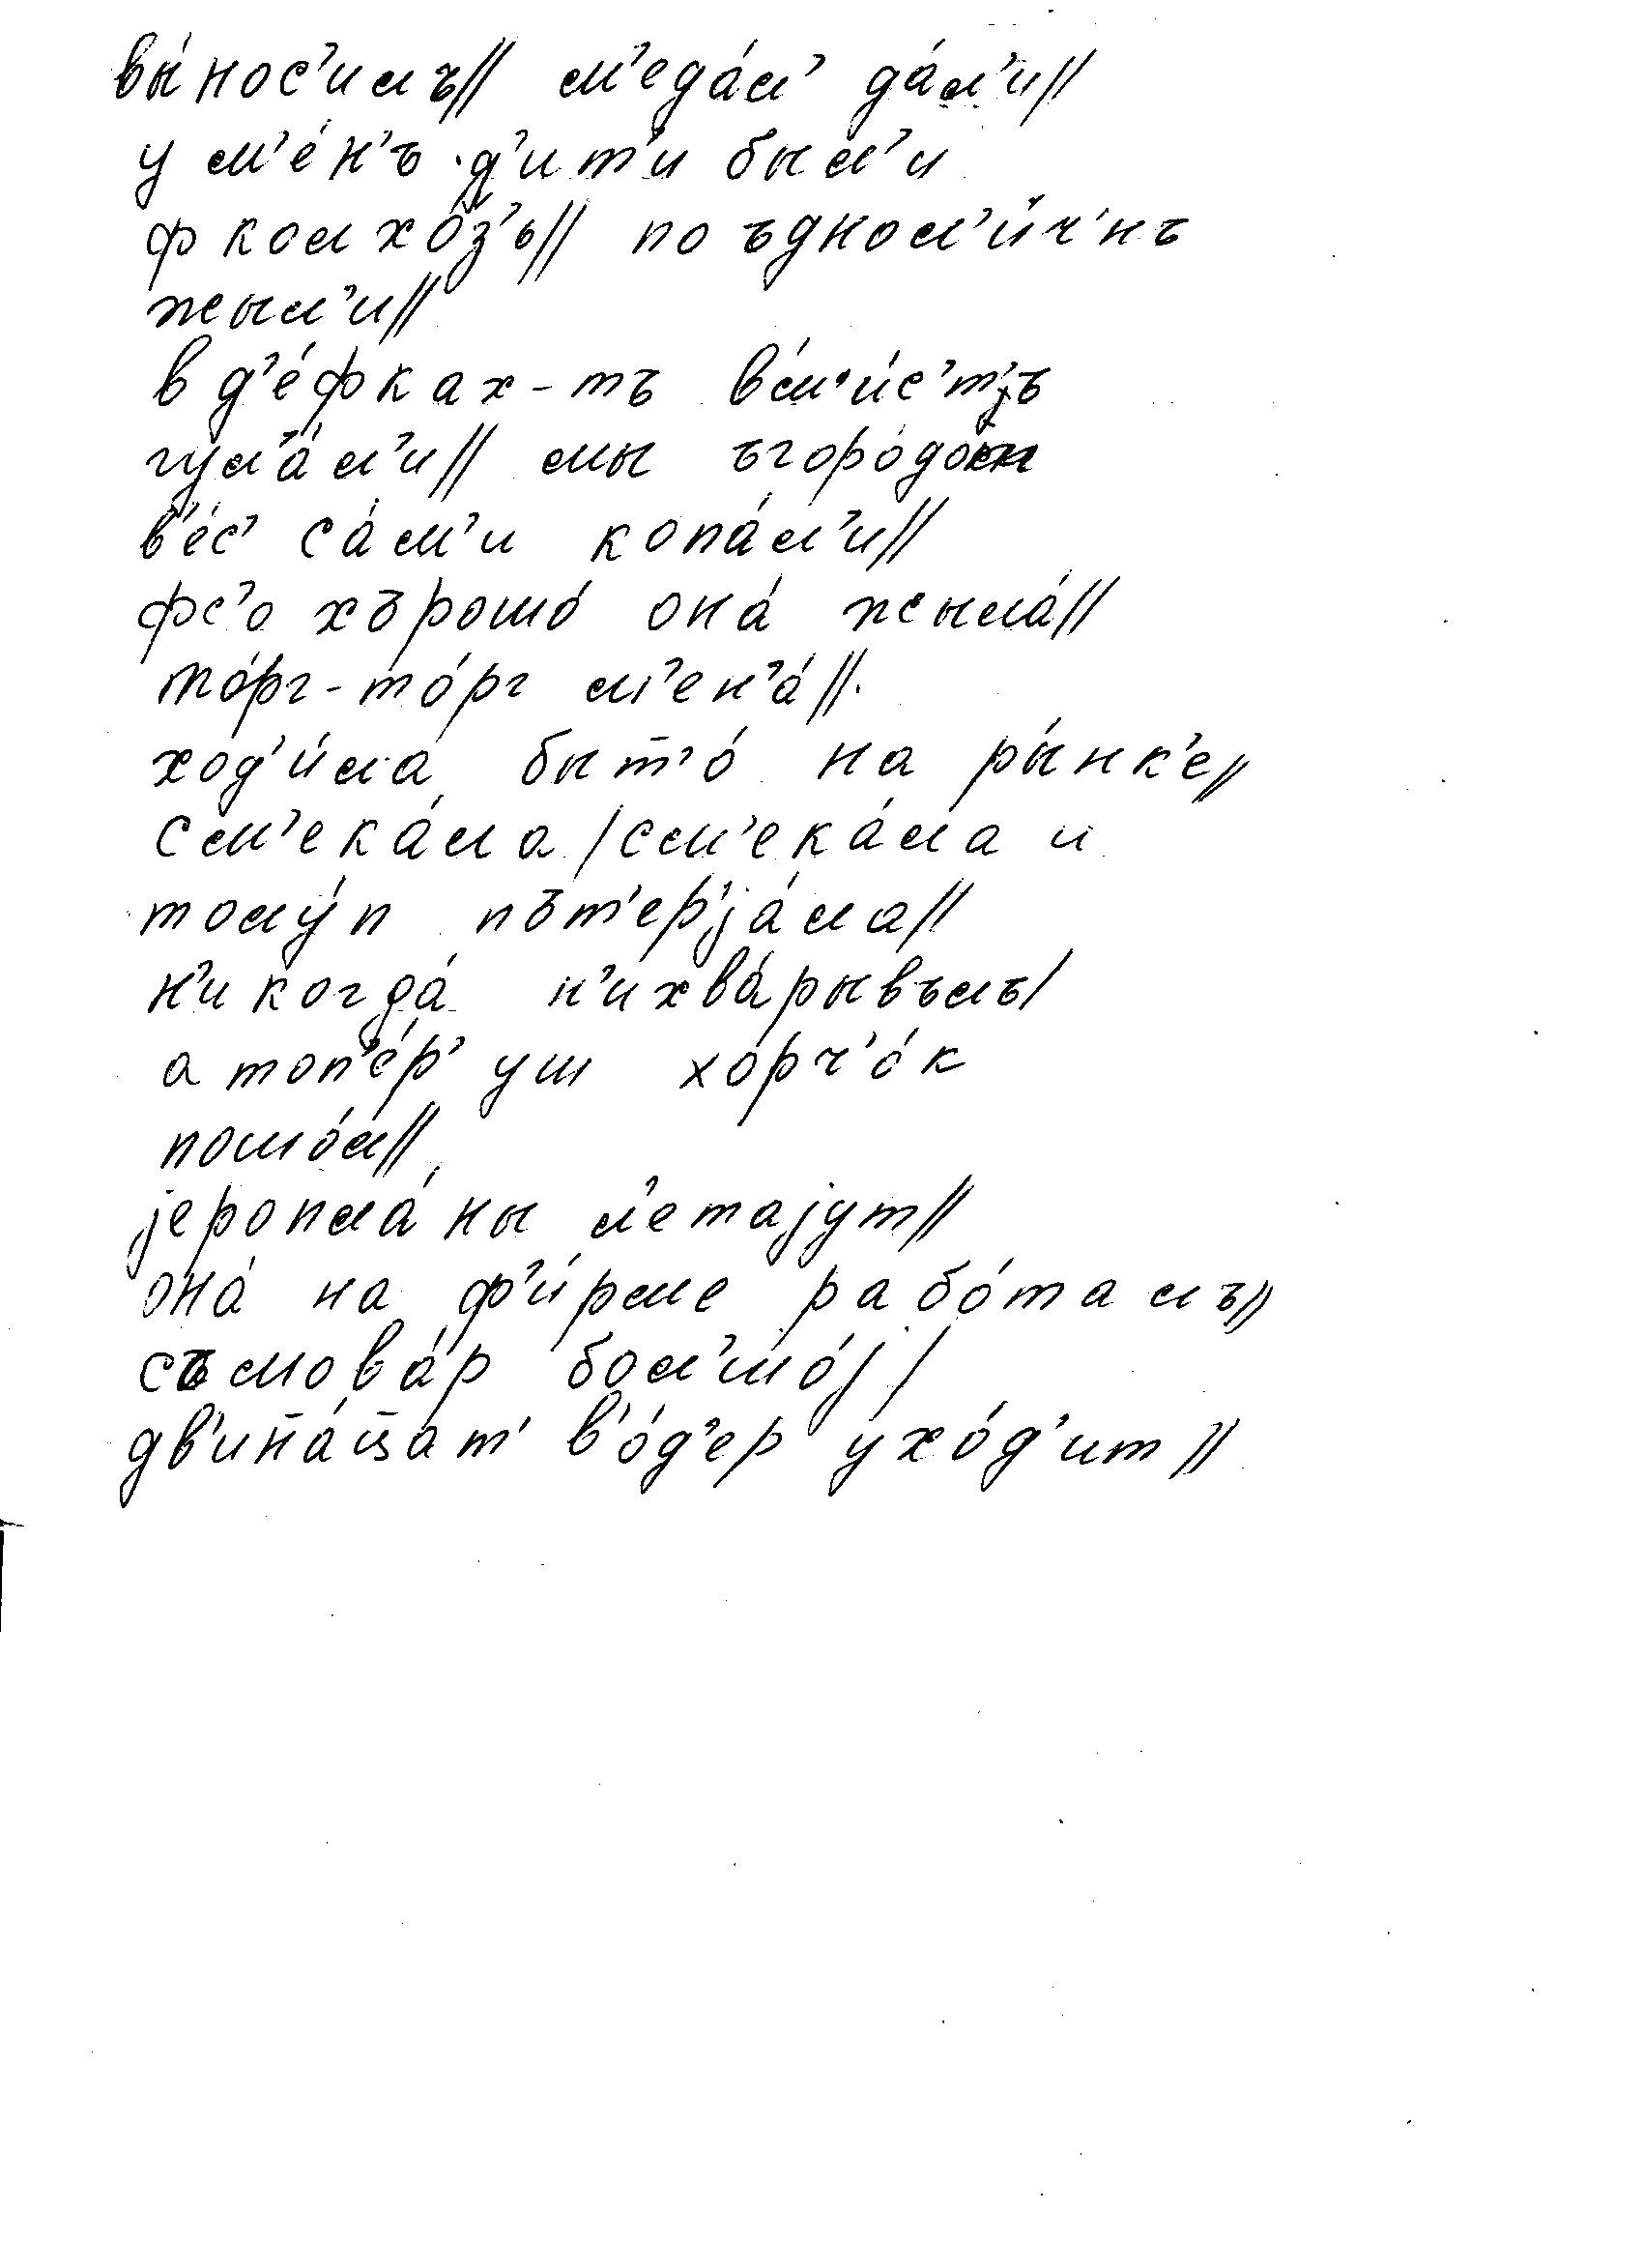 вы́нос'илъ// м'еда́л' да́л'и//
у м'е́н'ъ д'ит'и был'и
ф колхо́з'ъ// по ъднол'и́ч'нъ
жыл'и//
в д'е́фках-тъ вм'и́с'т'ъ
гул'а́л'и// мы ъгоро́дом
в'е́с' са́м'и копа́л'и//
фс'о хърошо́ она́ жыла́//
то́рг-то́рг м'ен'а́//
ход'и́ла быт'о́ на ры́нк'е//
см'ека́ла/см'ека́ла и
толу́п път'ер'jа́ла//
н'икогда́ н'ихва́рывълъ/
а топ'е́р' уш хорч'о́к
пошо́л//
jеропла́ны л'етаjут//
она́ на ф'и́рме рабо́талъ//
съмова́р бол'шо́j/
дв'ина̄́ц̄ат' в'о́д'ер ухо́д'ит//